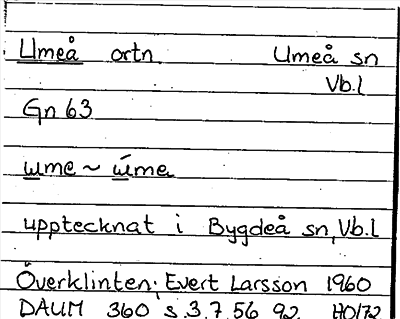 Umeå ortn Umeå sn
Vb.l
Gn 63
ɯme ~ ɯ́me
upptecknat i Bygdeå sn, Vb.l
Överklinten; Evert Larsson 1960
DAUM 360 s.3.7.56 92 HO/72